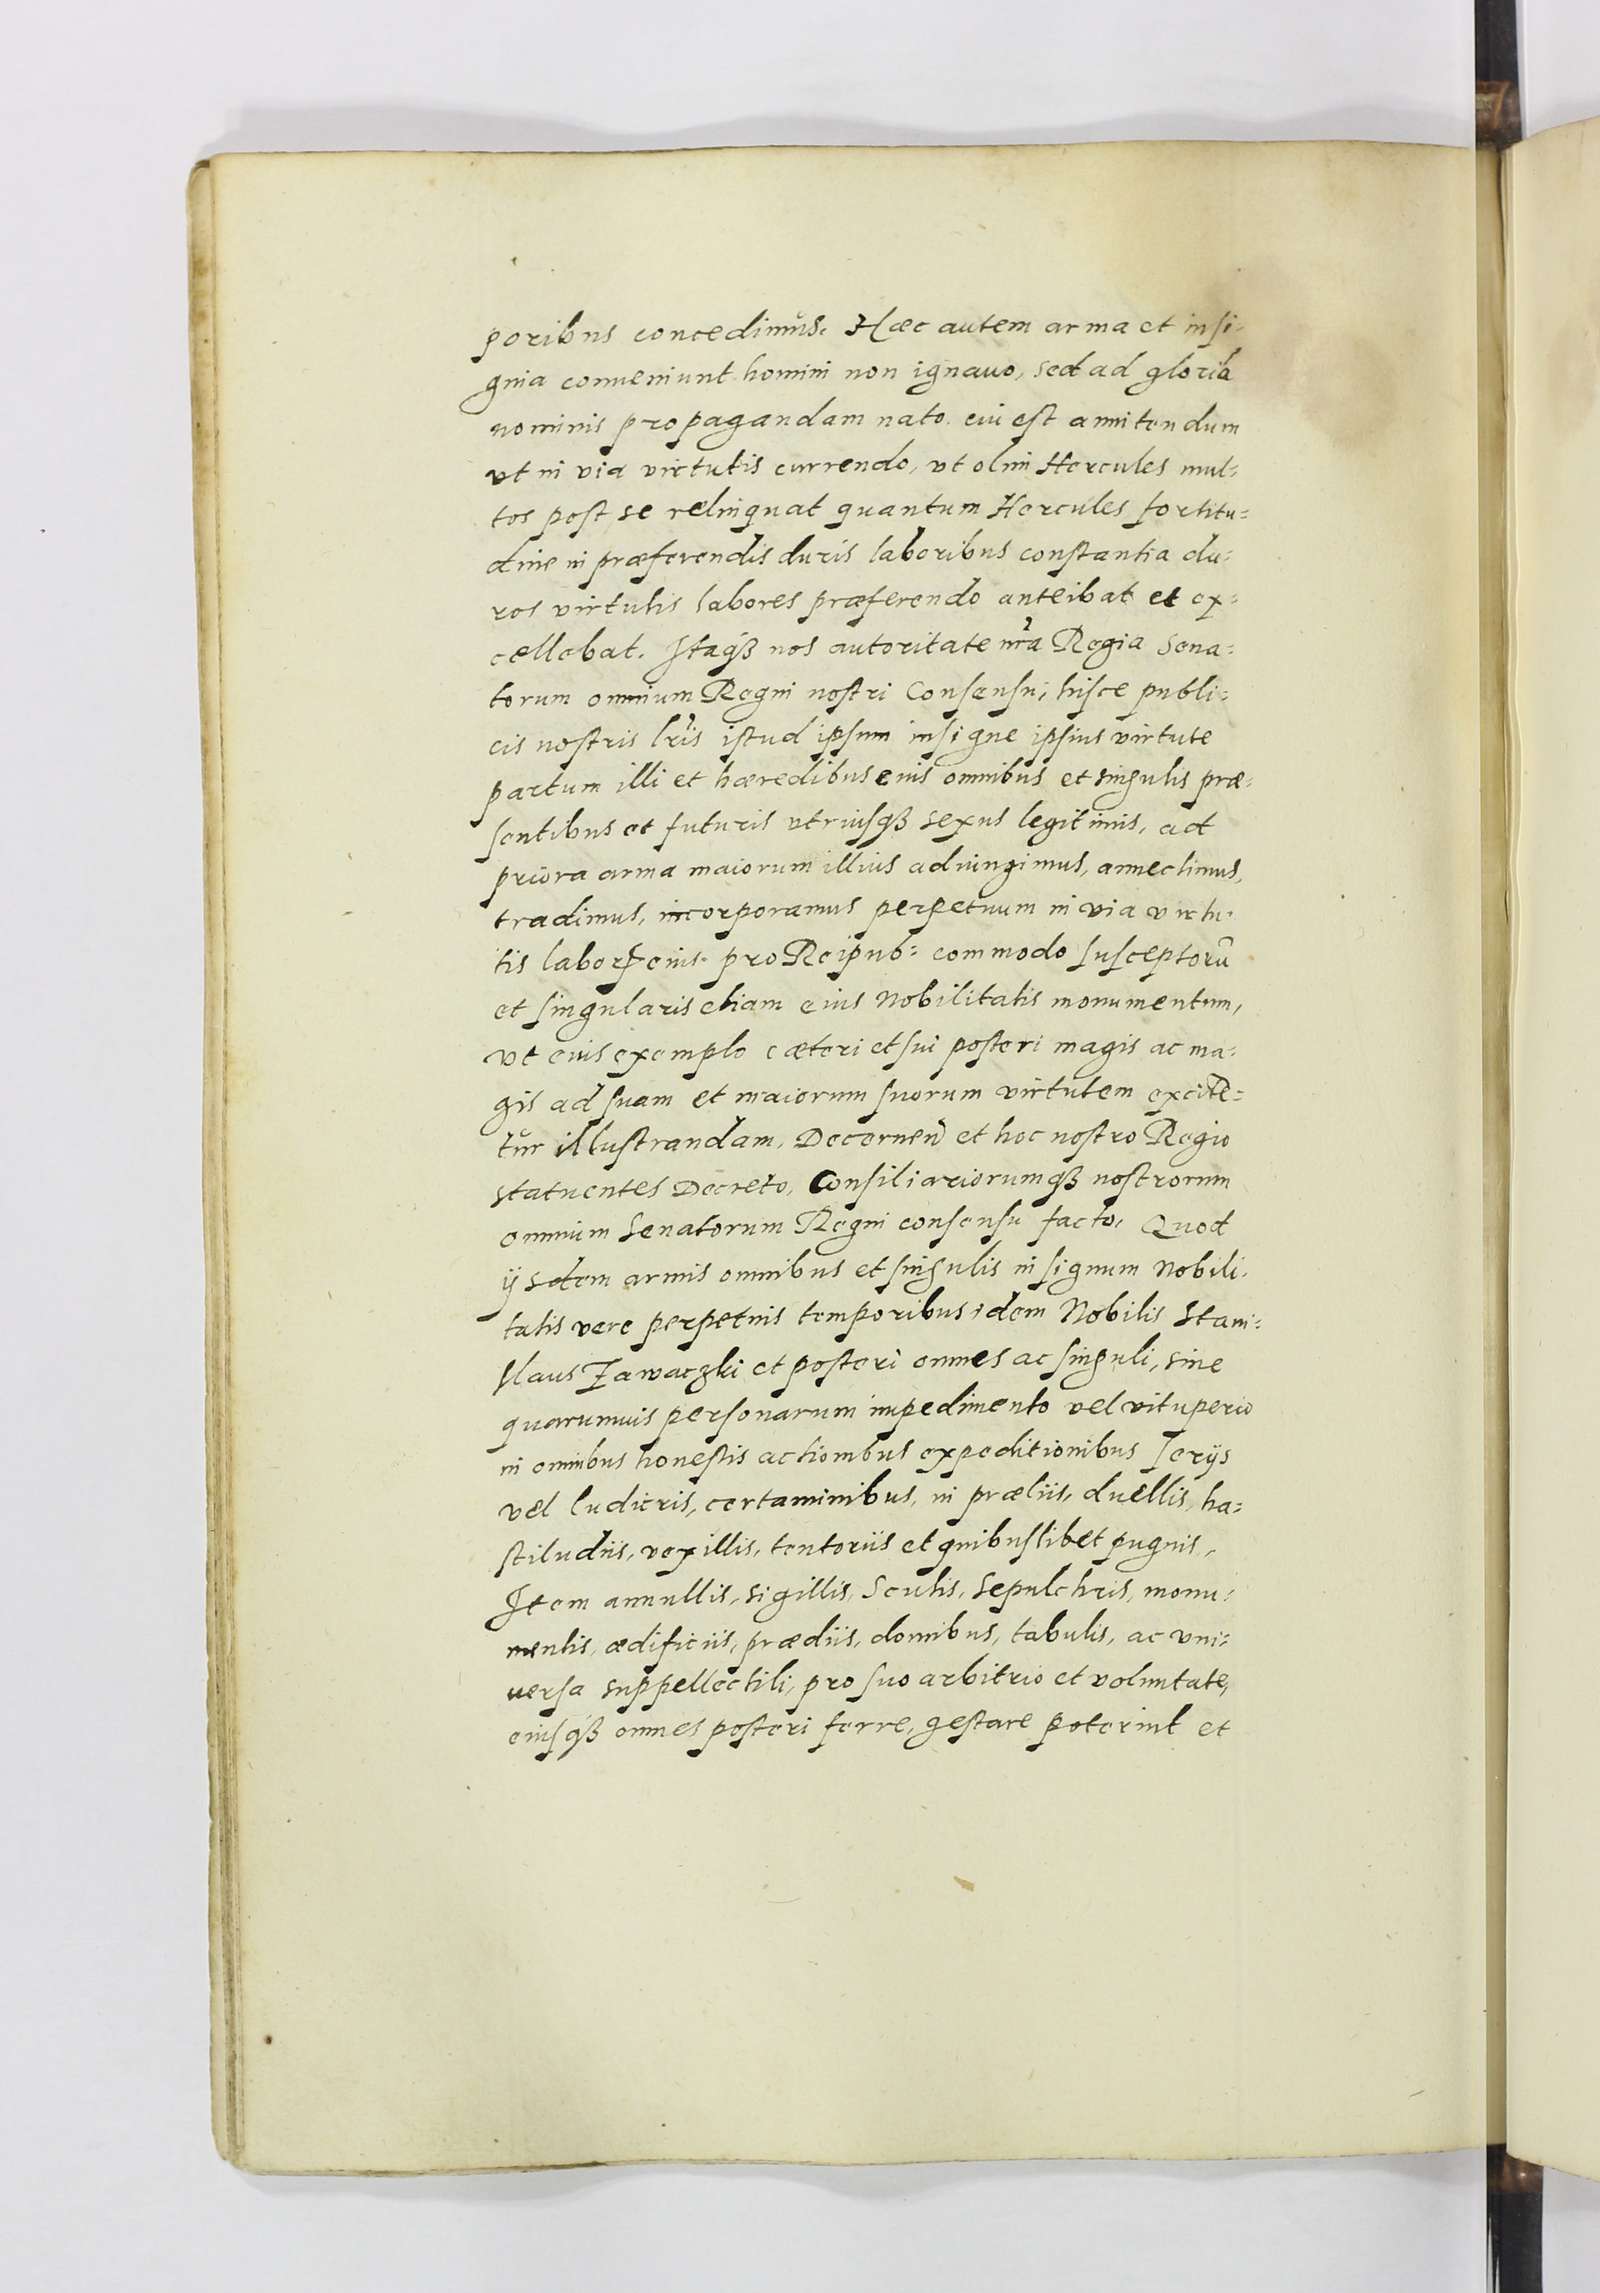 poribus concedimus. Hæc autem arma et insi-
gnia conueniunt homini non ignauo, sed ad gloriã
nominis propagandam nato. cui est annitendum
vt in via virtutis currendo, vt olim Hercules mul-
tos post se relinquat quantum Hercules fortitu-
dine in præferendis duris laboribus constantia du-
ros virtutis labores præferendo anteibat et ex-
cellebat. Itaqȝ nos autoritate nrã Regia Sena-
torum omnium Regni nostri Consensu, hisce publi-
cis nostris lrĩs istud ipsum insigne ipsius virtute
partum illi et hæredibus eius omnibus et singulis præ-
sentibus et futuris vtriusqȝ sexus legitimis, ad
priora arma maiorum illius adiungimus, annectimus,
tradimus, incorporamus perpetuum in via virtu-
tis laborꝝ eius pro Reipub: commodo susceptorũ
et singularis etiam eius Nobilitatis monumentum,
vt eius exemplo cæteri et sui posteri magis ac ma-
gis ad suam et maiorum suorum virtutem excite-
tur illustrandam, Decernẽn et hoc nostro Regio
statuentes Decreto, Consiliariorumqȝ nostrorum
omnium Senatorum Regni consensu facto, Quod
ijsdem armis omnibus et singulis in signum Nobili-
tatis vere perpetuis temporibus idem Nobilis Stani-
slaus Zawaczki et posteri omnes ac singuli, sine
quarumuis personarum impedimento vel vituperio
in omnibus honestis actionibus expeditionibus serijs
vel ludicris, certaminibus, in præliis, duellis, ha-
stiludiis, vexillis, tentoriis et quibuslibet pugnis,
Item annullis, sigillis, Scutis, Sepulchris, monu-
mentis, ædificiis, prædiis, domibus, tabulis, ac vni-
uersa suppellectili, pro suo arbitrio et voluntate,
eiusqȝ omnes posteri ferre, gestare poterint et